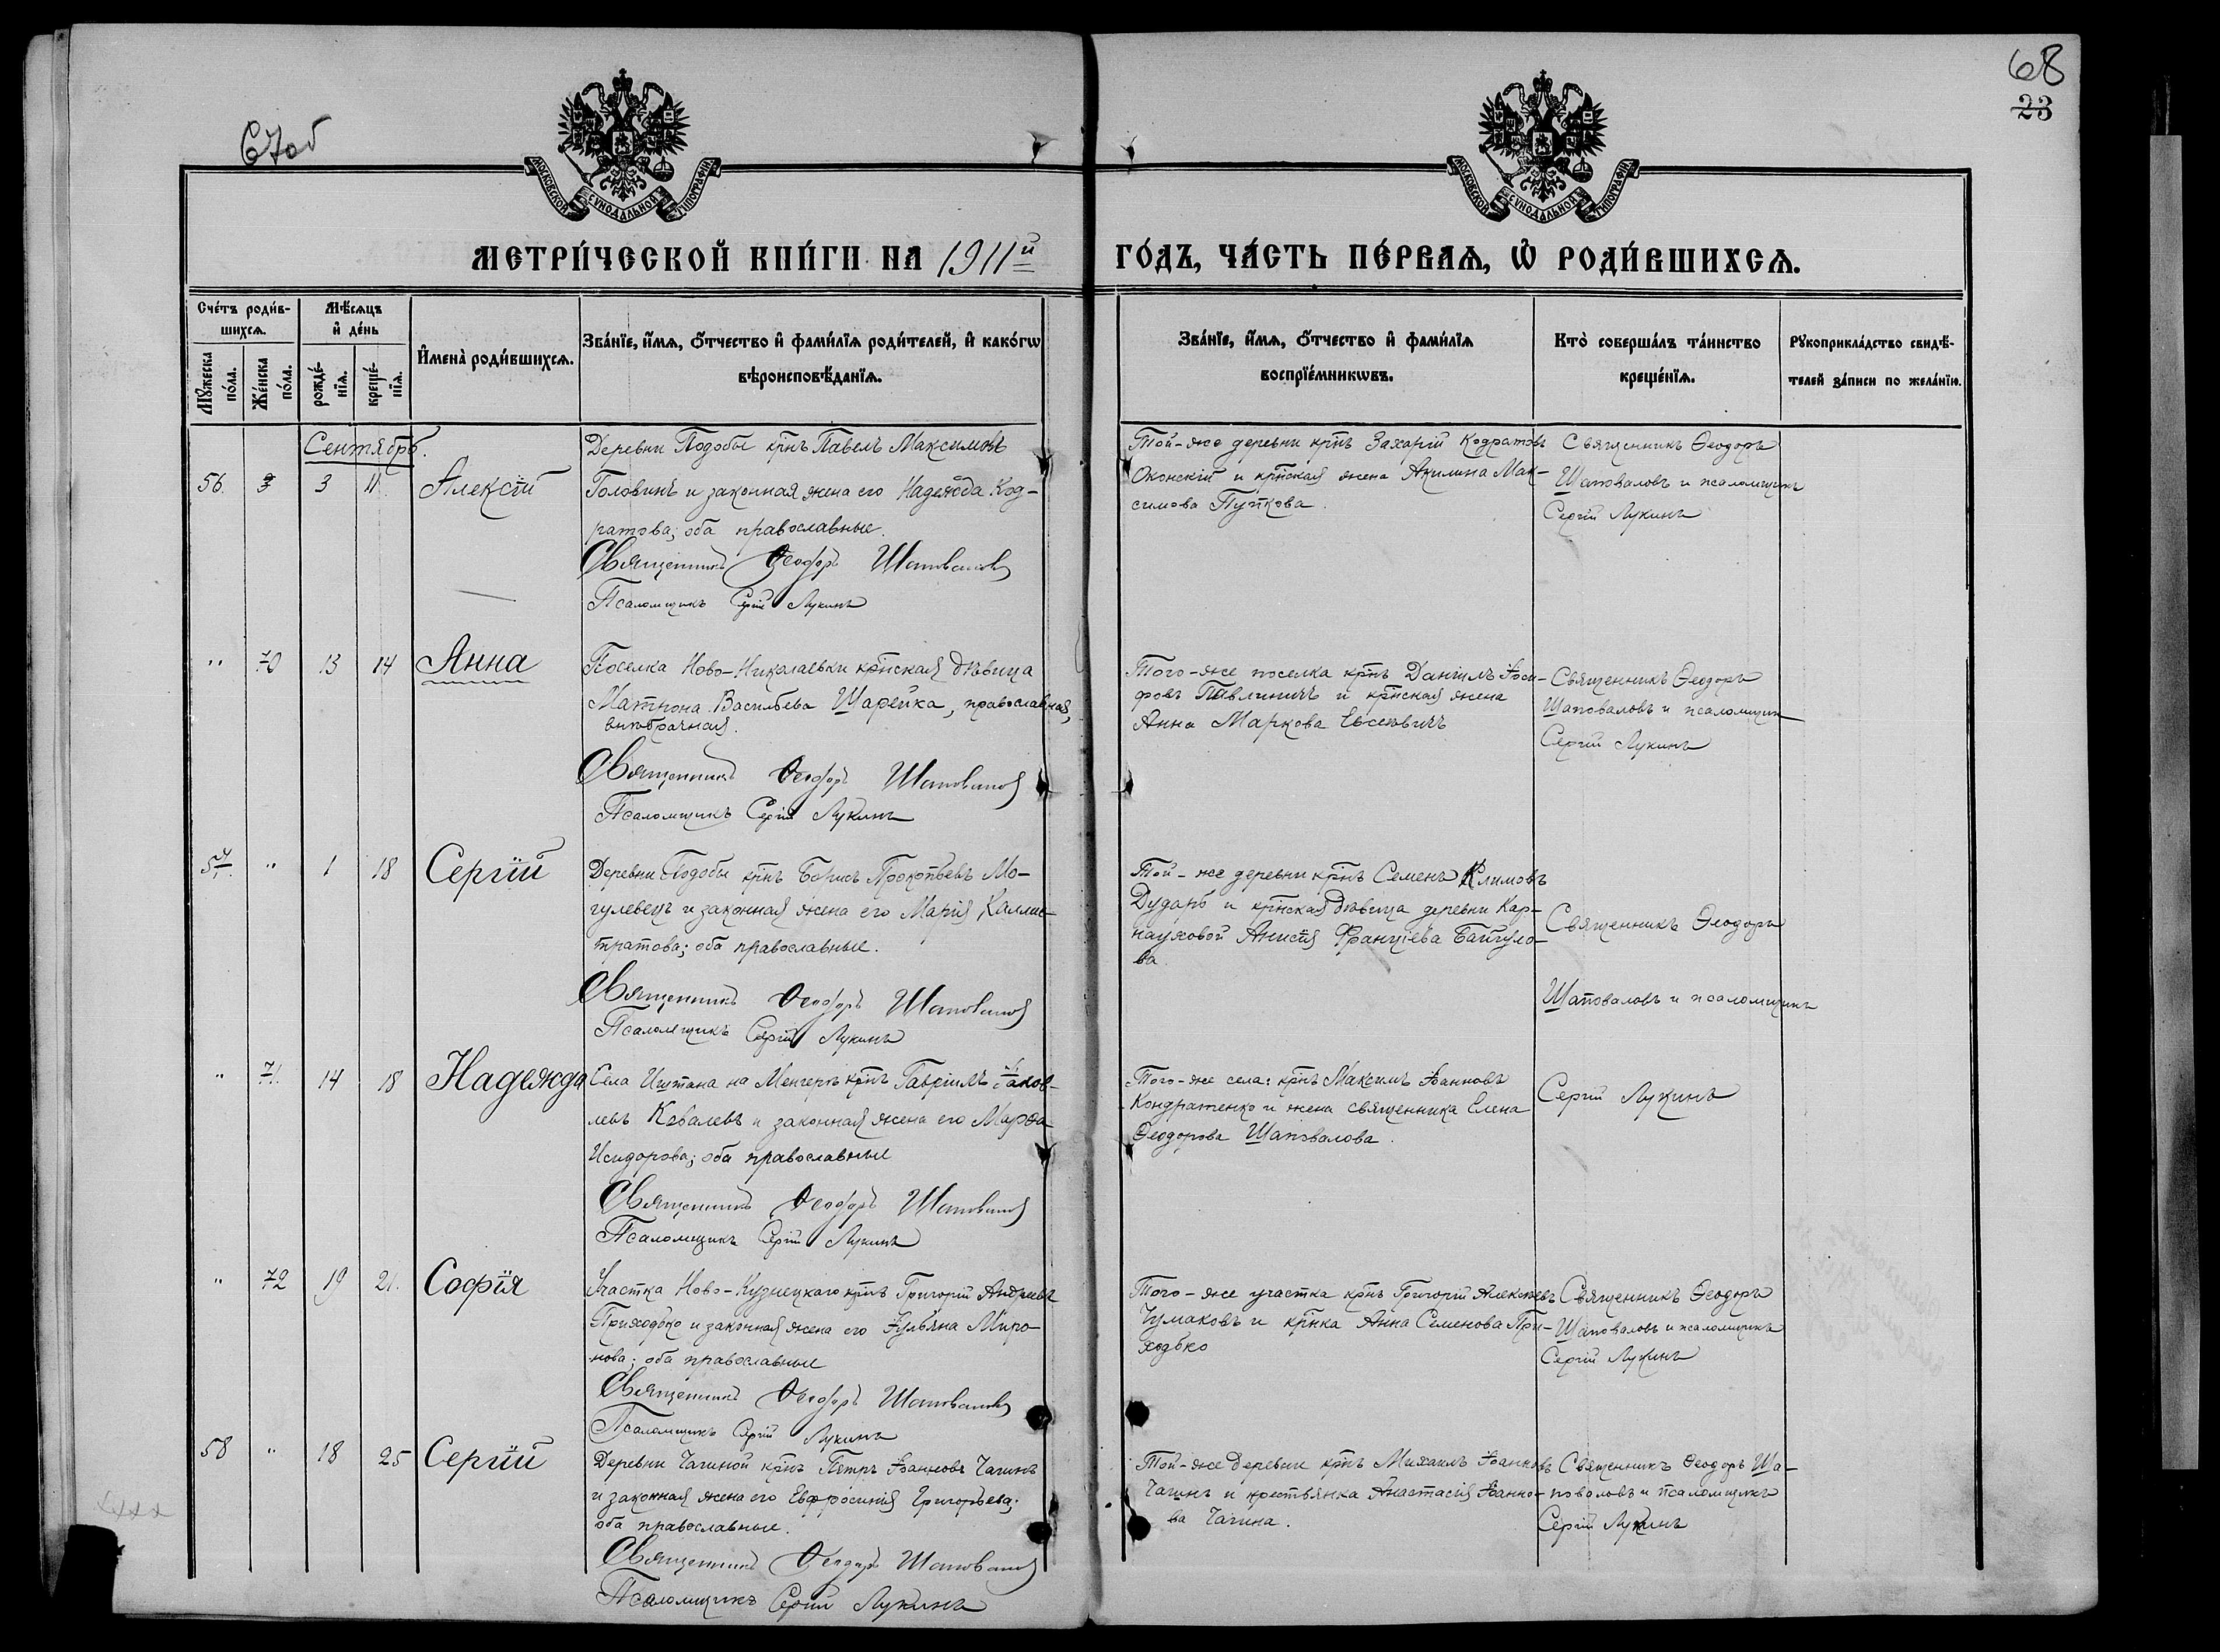 67об
68
23
МОСКОВСКОЙ СѴНОДАЛЬНОЙ ТИПОГРАФІИ
МОСКОВСКОЙ СѴНОДАЛЬНОЙ ТИПОГРАФІИ
МЕТРИ́ЧЕСКОЙ КНИ́ГИ НА 1911й
ГО́ДЪ, ЧА́СТЬ ПЕ́РВАѦ, Ѡ҆ РОДИ́ВШИХСѦ.
Сче́тъ роди́в-
шихсѧ.
Мѣ́сѧцъ
и҆ де́нь
Мꙋ́жеска
по́ла.
Же́нска
по́ла.
рожде́-
нїѧ.
креще́-
нїѧ.
И҆мена̀ роди́вшихсѧ.
Зва́нїе, и҆́мѧ, ѻ҆́тчество и҆ фами́лїѧ роди́телей, и҆ како́гѡ
вѣроисповѣ́данїѧ.
Зва́нїе, и҆́мѧ, ѻ҆́тчество и҆ фами́лїѧ
воспрїе́мникѡвъ.
Кто̀ соверша́лъ та́инство
креще́нїѧ.
Рꙋкоприкла́дство свидѣ́-
телей за́писи по жела́нїю.
Сентябрь.
56. 3 11. Алексій
Деревни Подобы крнъ Павелъ Максимовъ
Головинъ и законная жена его Надежда Код-
ратова; оба православные.
Священникъ Ѳеодоръ Шаповаловъ
Псаломщикъ Сергій Лукинъ
Той-же деревни крнъ Захарій Кодратовъ
Оконскій и крнская жена Акилина Мак-
симова Пупкова.
Священникъ Ѳеодоръ
Шаповаловъ и псаломщикъ
Сергій Лукинъ
" 70 13 14 Анна
Поселка Ново-Николаевки крнская дѣвица
Матрона Васильева Шарейка, православная,
внѣбрачная.
Священникъ Ѳеодоръ Шаповаловъ
Псаломщикъ Сергій Лукинъ
Того-же поселка крнъ Даніилъ Іоси-
фовъ Павлиничъ и крнская жена
Анна Маркова Евсеевичъ
Священникъ Ѳеодоръ
Шаповаловъ и псаломщик
Сергій Лукинъ
57. " 1 18 Сергій
Деревни Подобы крнъ Борисъ Прокопьевъ Мо-
гулевецъ и законная жена его Марія Каллис-
тратова; оба православные.
Священникъ Ѳеодоръ Шаповаловъ
Псаломщикъ Сергій Лукинъ
Той-же деревни крнъ Семенъ Климовъ
Дударь и крнская дѣвица деревни Кар-
науховой Анисія Францiева Байгуло-
ва
Священникъ Ѳеодоръ
Шаповаловъ и псаломщикъ
Сергій Лукинъ
" 71. 14 18 Надежда
Села Иштана на Менгерѣ крнъ Гавріилъ Іаков-
левъ Ковалевъ и законная жена его Марѳа
Исидорова; оба православные
Священникъ Ѳеодоръ Шаповаловъ
Псаломщикъ Сергій Лукинъ
Того-же села: крнъ Максимъ Іоанновъ
Кондратенко и жена священника Елена
Ѳеодорова Шаповалова.
" 72 19 21. Софія
Участка Ново-Кузнецкаго крнъ Григорій Андреевъ
Приходько и законная жена его Іульяна Миро-
нова; оба православные
Священникъ Ѳеодоръ Шаповаловъ
Псаломщикъ Сергій Лукинъ
Того-же участка крнъ Григорій Алексѣевъ
Чумаковъ и крнка Анна Семенова При-
ходько
Священникъ Ѳеодоръ
Шаповаловъ и псаломщикъ
Сергій Лукинъ
58 " 18 25 Сергій
Деревни Чагиной крнъ Петръ Іоанновъ Чагинъ
и законная жена его Евфросинія Григорьева;
оба православные.
Священникъ Ѳеодоръ Шаповаловъ
Псаломщикъ Сергій Лукинъ
Той-же деревни крнъ Михаилъ Іоанновъ
Чагинъ и крестьянка Анастасія Іоанно-
ва Чагина.
Священникъ Ѳеодоръ Ша-
поваловъ и псаломщикъ
Сергій Лукинъ